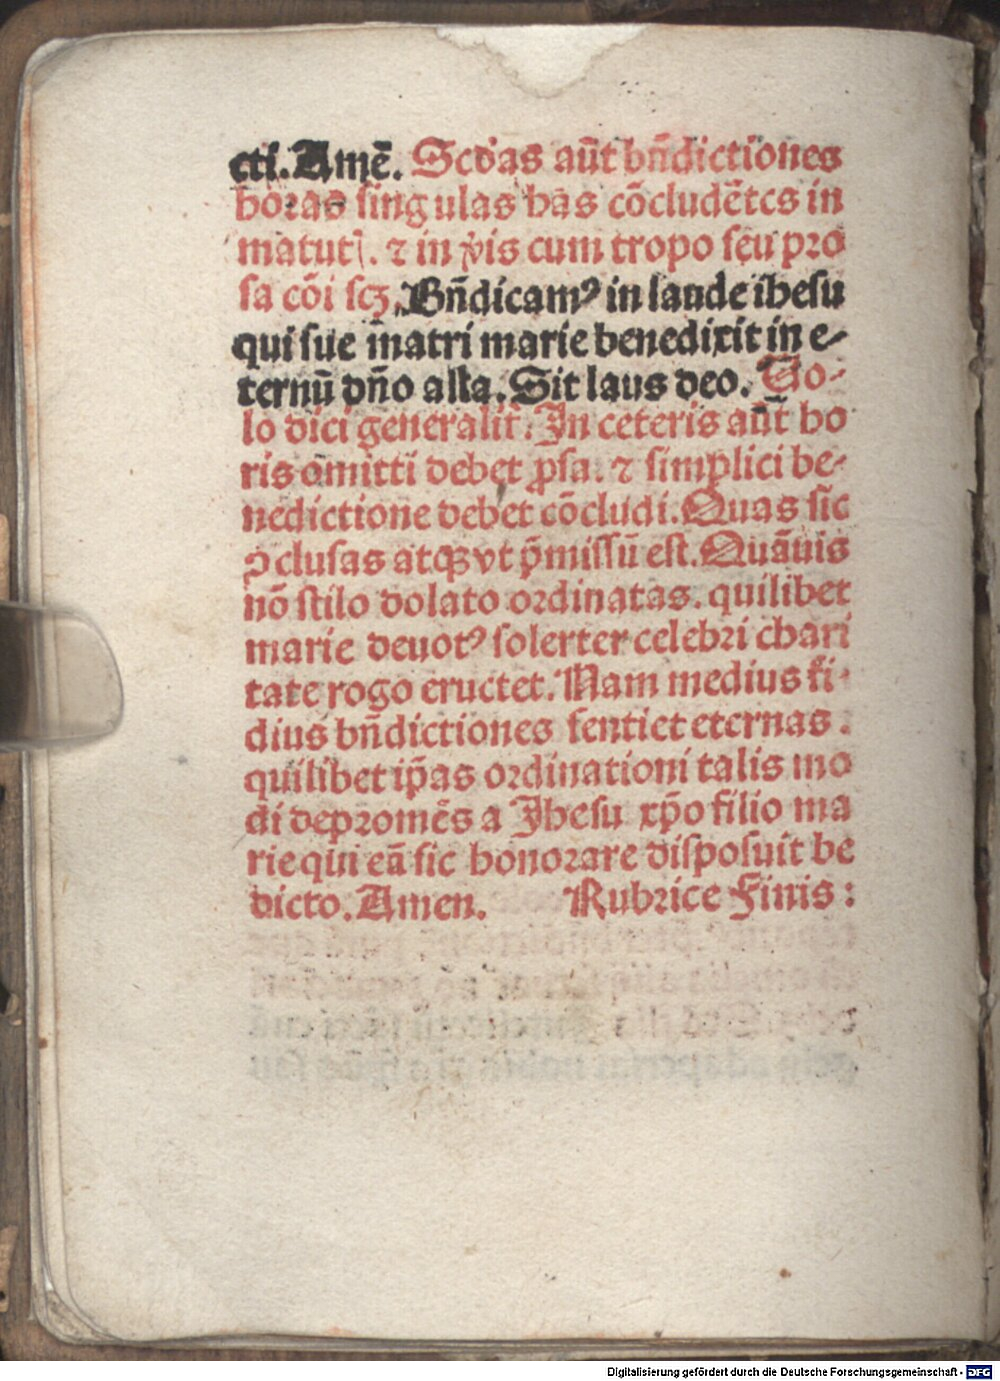 cti. Amē. Scďas aūt bn̄dictiones
horas singulas has cōcludētes in
matut. ⁊ in v̄is cum tropo seu pro
sa cōi scꝫ. Bn̄dicamꝰ in laude ihesu
qui sue matri marie benedixit in e-
ternū dn̄o alla. Sit laus deo. Uo-
lo dici generalit̄. In ceteris aūt ho
ris omitti debet ꝓsa. ⁊ simplici be-
nedictione debet cōcludi. Quas sic
ꝯclusas atqꝫ vt p̄missū est. Quāuis
nō stilo dolato ordinatas. quilibet
marie deuotꝰ solerter celebri chari
tate rogo eructet. Nam medius fi-
dius bn̄dictiones sentiet eternas.
quilibet ip̄as ordinationi talis mo
di depromēs a Jhesu xp̄o filio ma
rie qui eā sic honorare disposuit be
dicto. Amen. Rubrice Finis:
Digitalisierung gefördert durch die Deutsche Forschungsgemeinschaft - DFG